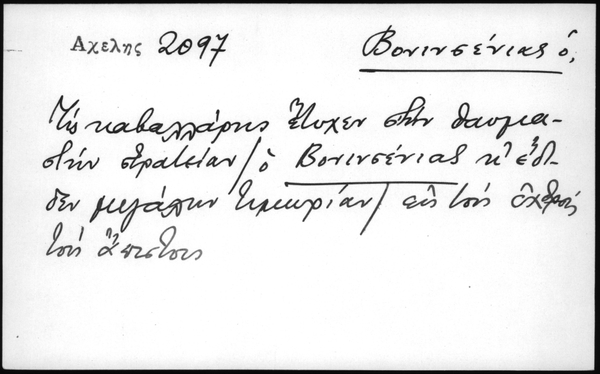 Αχελης 2097 Βονινσένιας ὁ,
Τὶς καβαλλάρης ἔτυχεν στὴν θαυμα-
στὴν στρατείαν / ὁ Βονινσένιας κ' ἔδι-
δεν μεγάλην τιμωρίαν / εἰς τοὺς ἐχθροὺς
τοὺς ἄπιστους